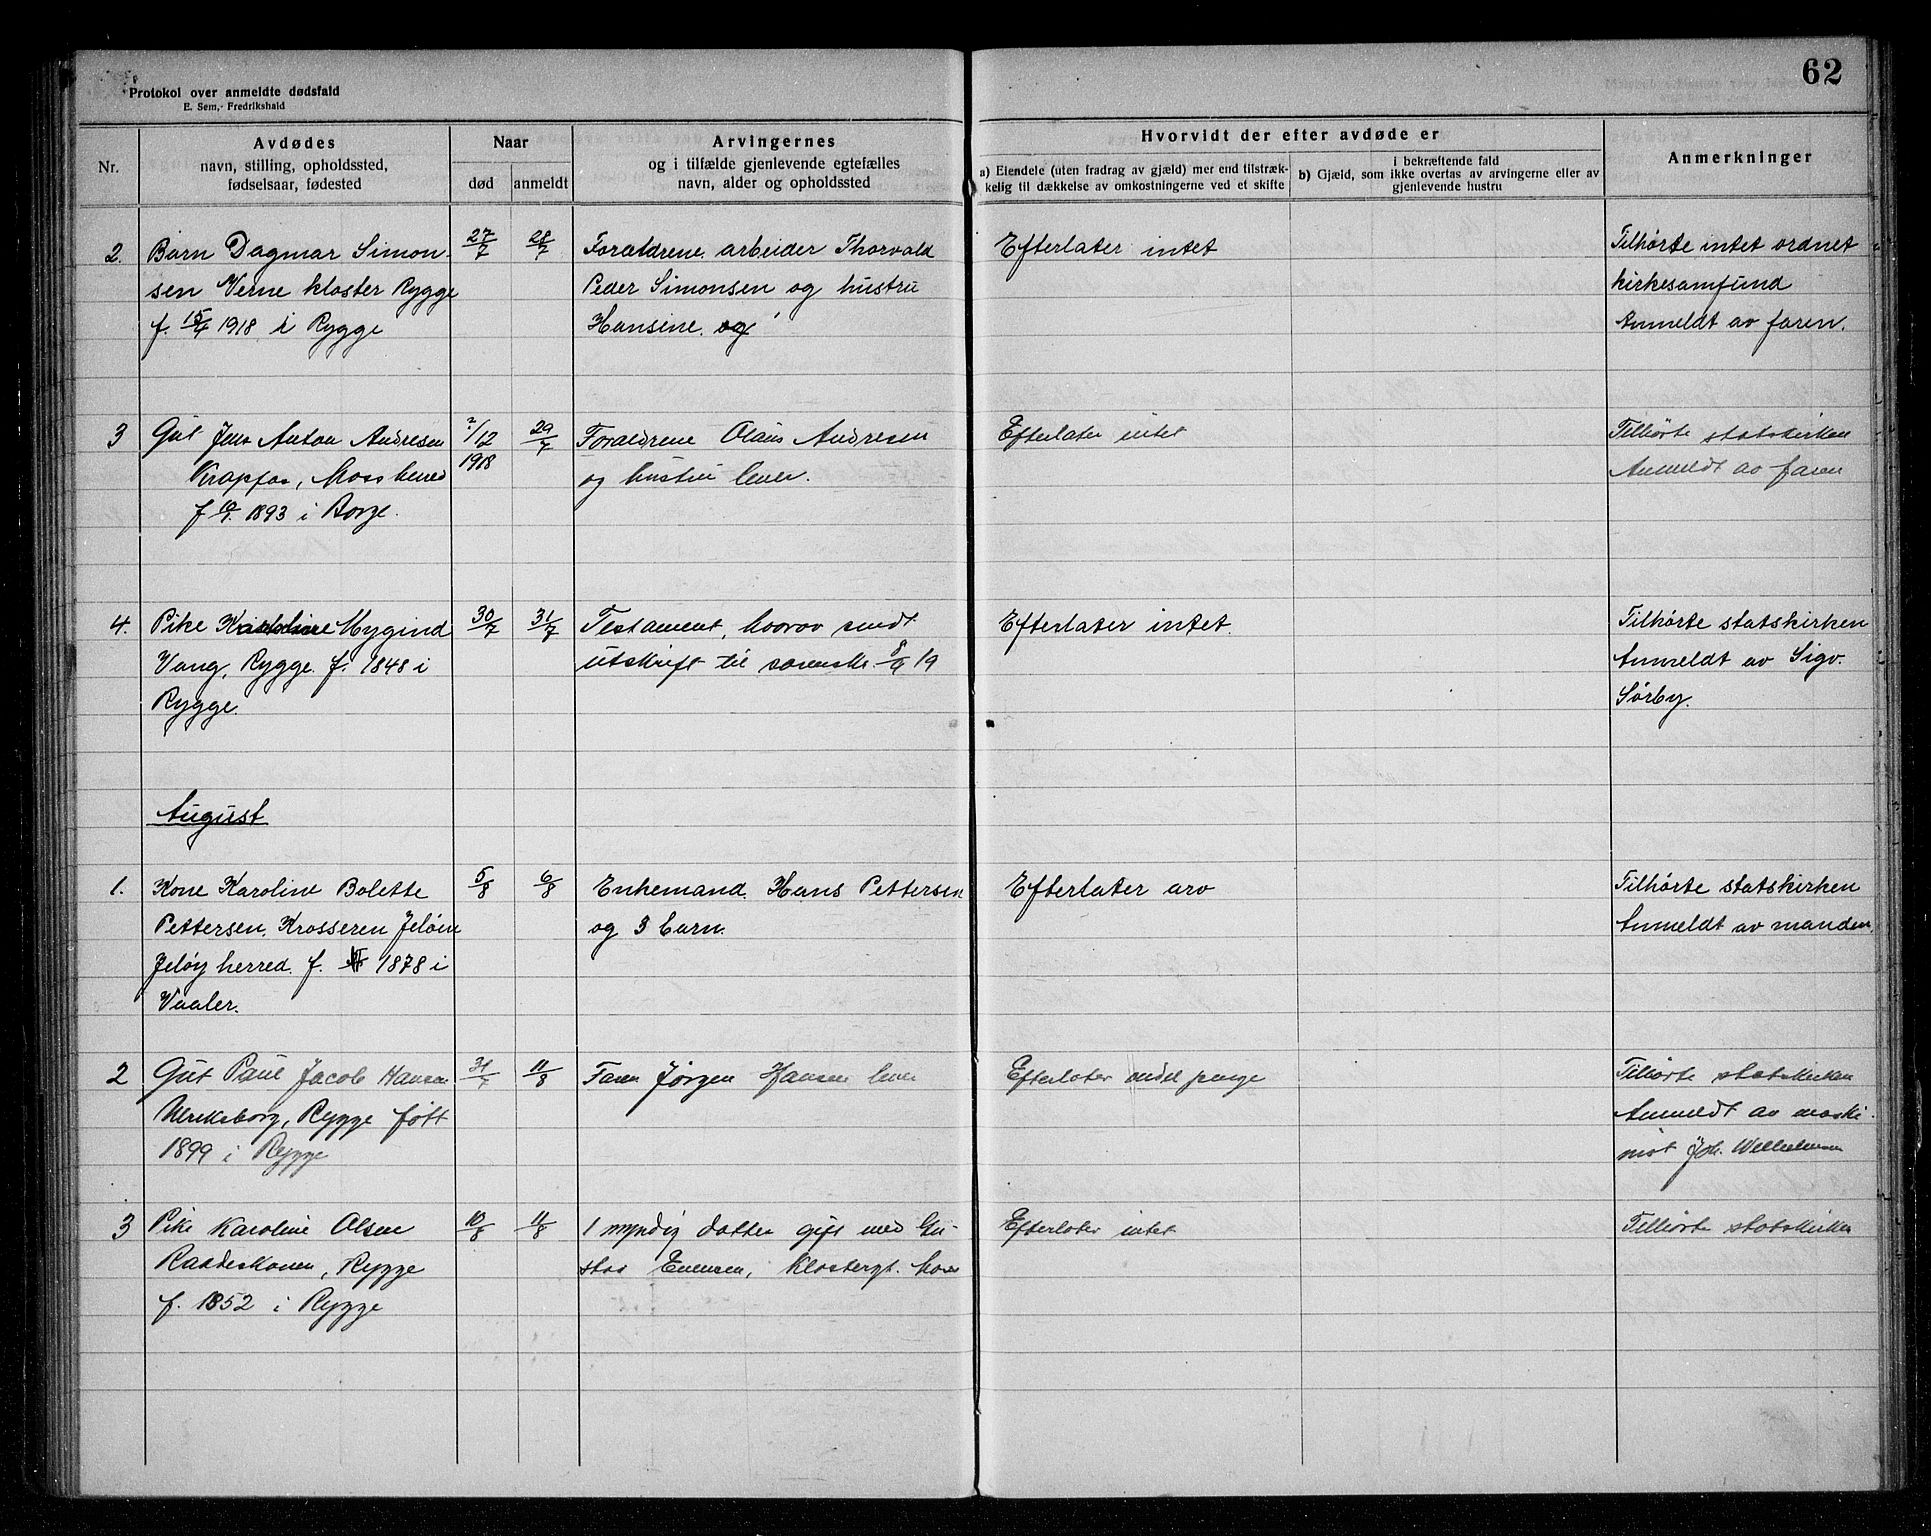 62
Protokol over anmeldte dødsfald
E. Sem,- Fredrikshald
Nr.
Avdødes
navn, stilling, opholdssted,
fødselsaar, fødested
Naar
død
anmeldt
Arvingernes
og i tilfælde gjenlevende egtefælles
navn, alder og opholdssted
Hvorvidt der efter avdøde er
a) Eiendele (uten fradrag av gjæld) mer end tilstræk-
kelig til dækkelse av omkostningerne ved et skifte
i bekræftende fald
b) Gjæld, som ikke overtas av arvingerne eller av
gjenlevende hustru
Anmerkninger
2. Barn Dagmar Simon-
sen Verne kloster Rygge
f. 15/4 1918 i Rygge
27/7
28/7
Forældrene arbeider Thorvald
Peder Simonsen og hustru
Hansine. og
Efterlater intet
Tilhørte intet ordnet
kirkesamfund
Anmeldt av faren.
3 Gut Jens Anton Andresen
Krapfos, Moss herred
1893 i Borge.
/12
1918
29/7
Forældrene Olaus Andresen
og hustru lever.
Efterlater intet
Tilhørte statskirken
Anmeldt av faren
4. Pike Mygind
Vang, Rygge. f. 1848 i
Rygge.
30/7
31/7
Testament, hvorav sendt
utskrift til 19
Efterlater intet.
Tilhørte statskirken
Anmeldt av Sigv.
Sørby.
August
1. Kone Karoline Bolette
Pettersen. Krosseren Jeløen
Jeløy herred. f. 1878 i
Vaaler.
5/8
6/8
Enkemand. Hans Pettersen
og 3 barn.
Efterlater arv
Tilhørte statskirken
Anmeldt av manden.
2 Gut Paul Jacob Hansen
Ulriksborg, Rygge født
1899 i Rygge
31/7
11/8
Faren Jørgen Hansen lever
Efterlater endel penge
Tilhørte statskirken
Anmeldt av maski-
nist Joh. Wilhelmsen
3 Pike Karoline Olsen
Raadeskonen, Rygge
f. 1852 i Rygge
10/8
11/8
1 myndig datter gift med Gu-
stav Evensen, Klostergt. Moss
Efterlater intet
Tilhørte statskirken